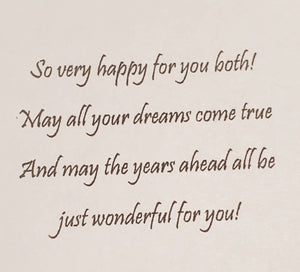 So very happy for you both!
May all your dreams come true
And may the years ahead all be
just wonderful for you!